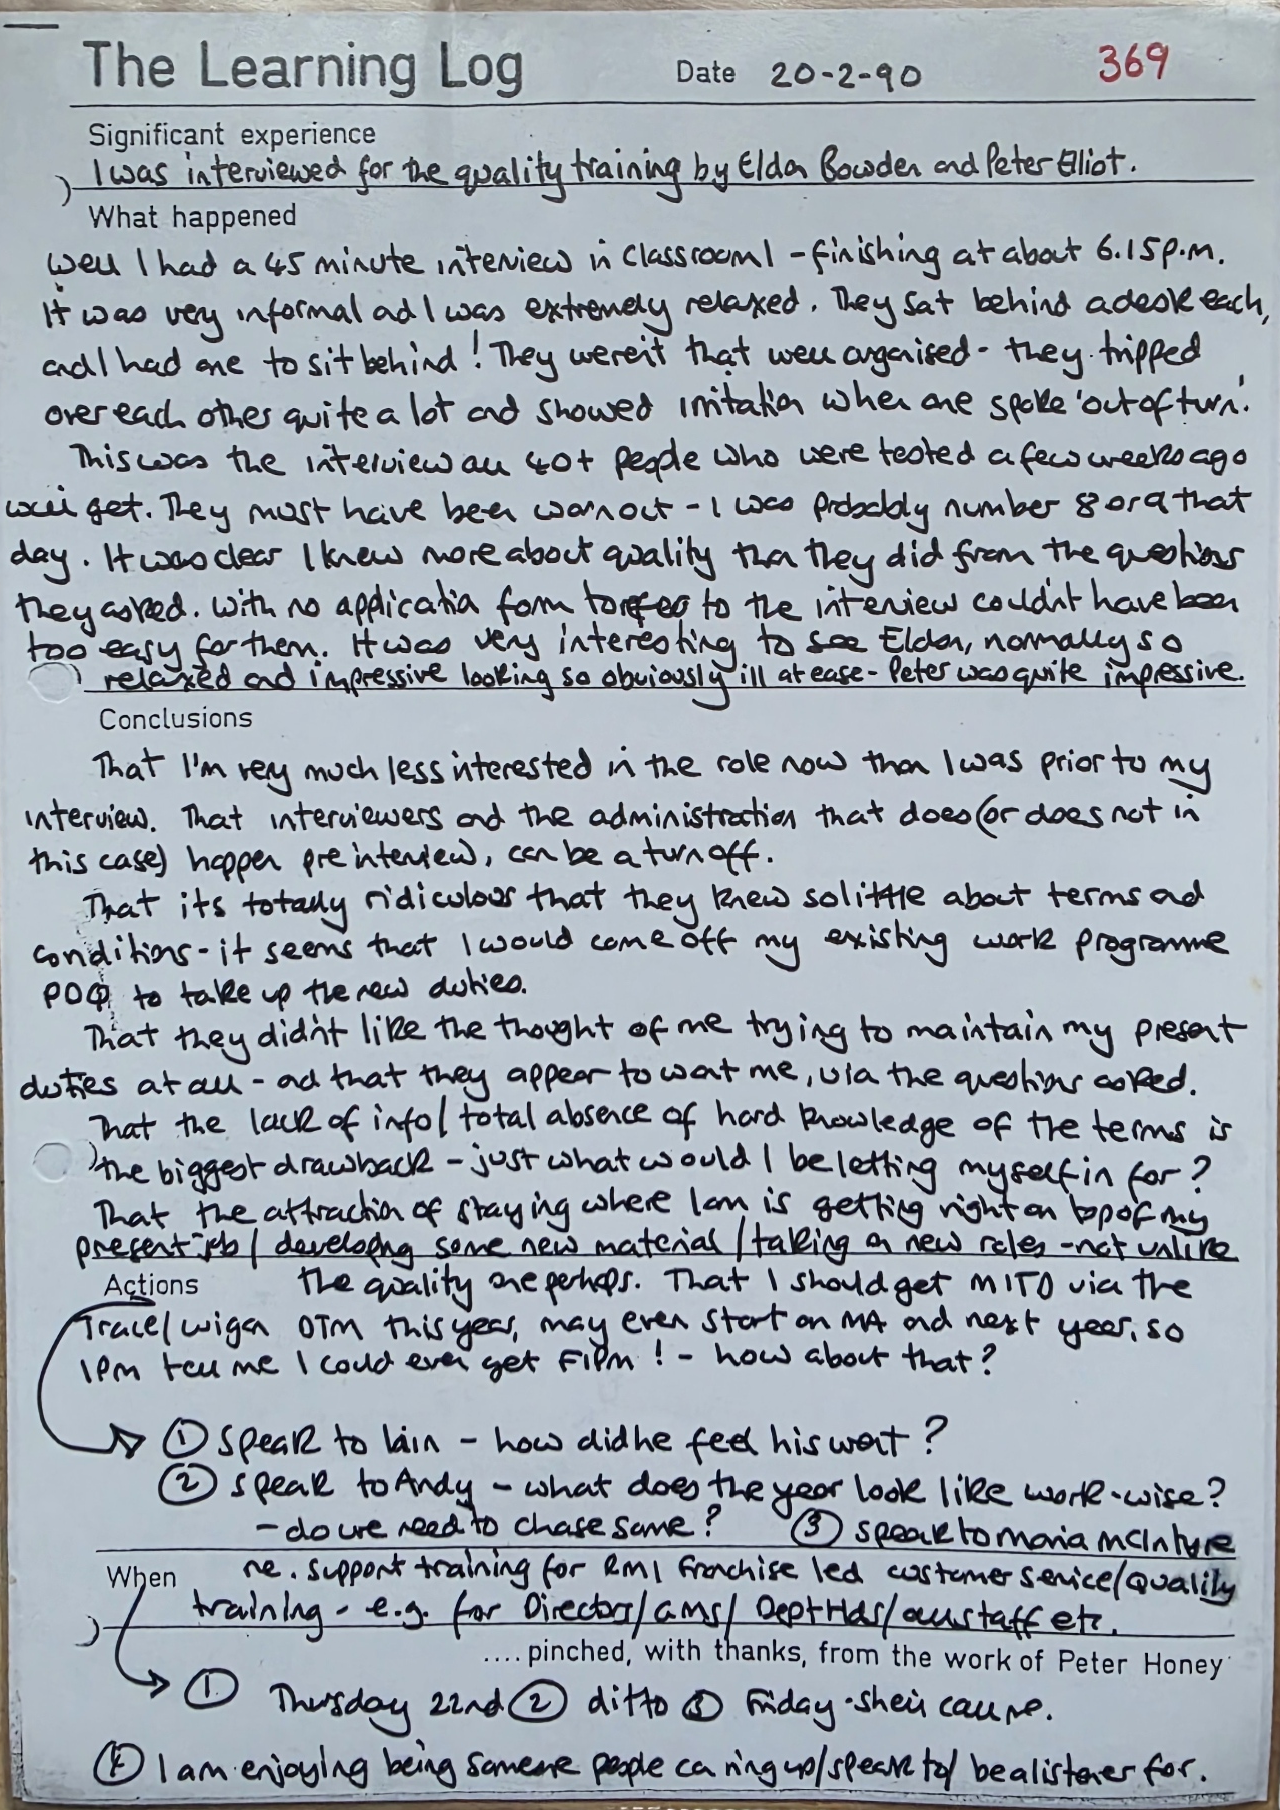 The Learning Log Date 20-2-90 369
Significant experience
I was interviewed for the quality training by Eldon Bowden and Peter Elliot.
What happened
Well I had a 45 minute interview in Classroom 1 - finishing at about 6.15 p.m.
It was very informal ad I was extremely relaxed. They sat behind a desk each,
and I had one to sit behind! They weren't that well organised - they tripped
over each other quite a lot and showed irritation when one spoke 'out of turn'.
This was the interview all 40+ people who were tested a few weeks ago
will get. They must have been worn out - I was probably number 8 or 9 that
day. It was clear I knew more about quality than they did from the questions
they asked. With no application form to refer to the interview couldn't have been
too easy for them. It was very interesting to see Eldon, normally so
relaxed and impressive looking so obviously ill at ease - Peter was quite impressive.
Conclusions
That I'm very much less interested in the role now than I was prior to my
interview. That interviewers and the administration that does (or does not in
this case) happen pre interview, can be a turn off.
That its totally ridiculous that they knew so little about terms and
conditions - it seems that I would come off my existing work programme
PDQ to take up the new duties.
That they didn't like the thought of me trying to maintain my present
duties at all - ad that they appear to want me, via the questions asked.
That the lack of info/total absence of hard knowledge of the terms is
the biggest drawback - just what would I be letting myself in for?
That the attraction of staying where I am is getting right on top of my
present job/developing some new material/taking on new roles - not unlike
Actions the quality one perhaps. That I should get MITD via the
Trace/Wigan OTM this year, may even start an MA and next year, so
IPM tell me I could even get FIPM! - how about that?
① Speak to Iain - how did he feel his went?
② Speak to Andy - what does the year look like work-wise?
- do we need to chase some? ③ speak to Maria McIntyre
When re. support training for RMI Franchise led customer service/Quality
training - e.g. for Directors/GMs/Dept Hds/all staff etc.
.... pinched, with thanks, from the work of Peter Honey
① Thursday 22nd ② ditto ③ Friday - she'll call me.
④ I am enjoying being someone people can ring up/speak to/be a listener for.